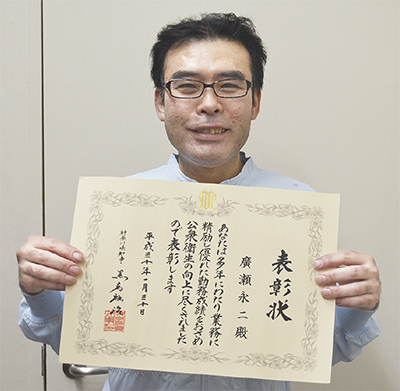 表彰状
廣瀬永二殿
あなたは多年にわたり業務に
精励し優れた勤務成績をおさめ
公衆衛生の向上に尽くされました
ので表彰します
平成三十年一月三十日
神奈川県知事